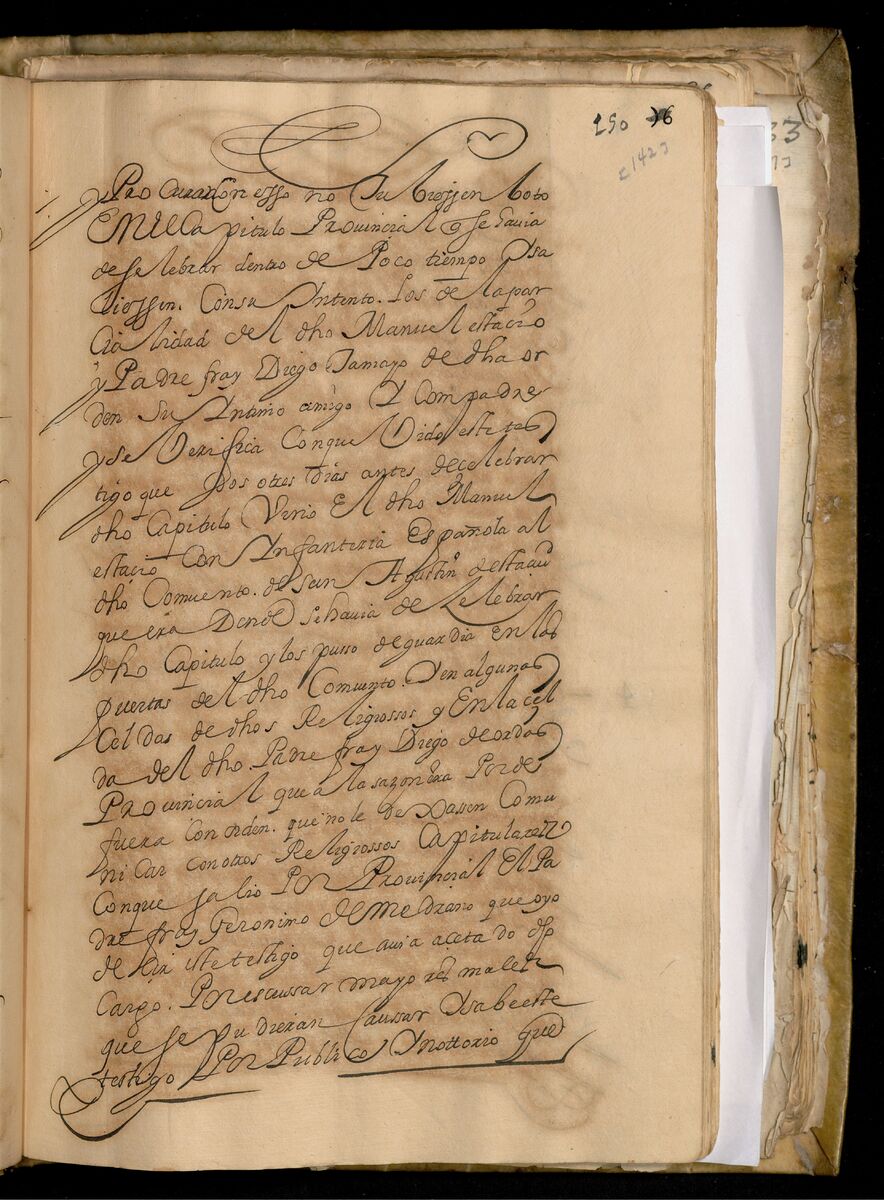 150 36
[142]
y Procuraron esso no tubiessen boto
En El Capitulo Provincial q se havia
de selebrar dentro de Poco tiempo Y sa
liessen. Con su Yntento. Los de la par
cialidad del dho Manuel estaçio
y Padre fray Diego Tamayo de dha or
den Su Yntimo amigo Y Compadre
y se Verifica Con que Vido este tes
tigo que dos o tres Dias antes de celebrar
dho Capitulo Vino El dho Manuel
estaçio Con Ynfanteria Española al
dho Comuento. de san Agustin desta
que era Donde se hauia de Zelebrar
dho Capitulo y los pusso de guardia En las
puertas del dho Comuento. Y en algunas
Celdas de dhos Religiossos y En la cel
da del dho. Padre fray Diego de ordas
Provincial que a la sazon Era Por de
fuera Con orden. que no le Dexassen Comu
nicar con otros Religiossos Capitulares
Con que salio Por Provincial El Pa
dre fray Geronimo de Medrano que oyo
dezir este testigo que auia acetado
Cargo. Por escussar mayores males
que se Pudieran Caussar Y sabe este
testigo Por Publico Y nottorio que